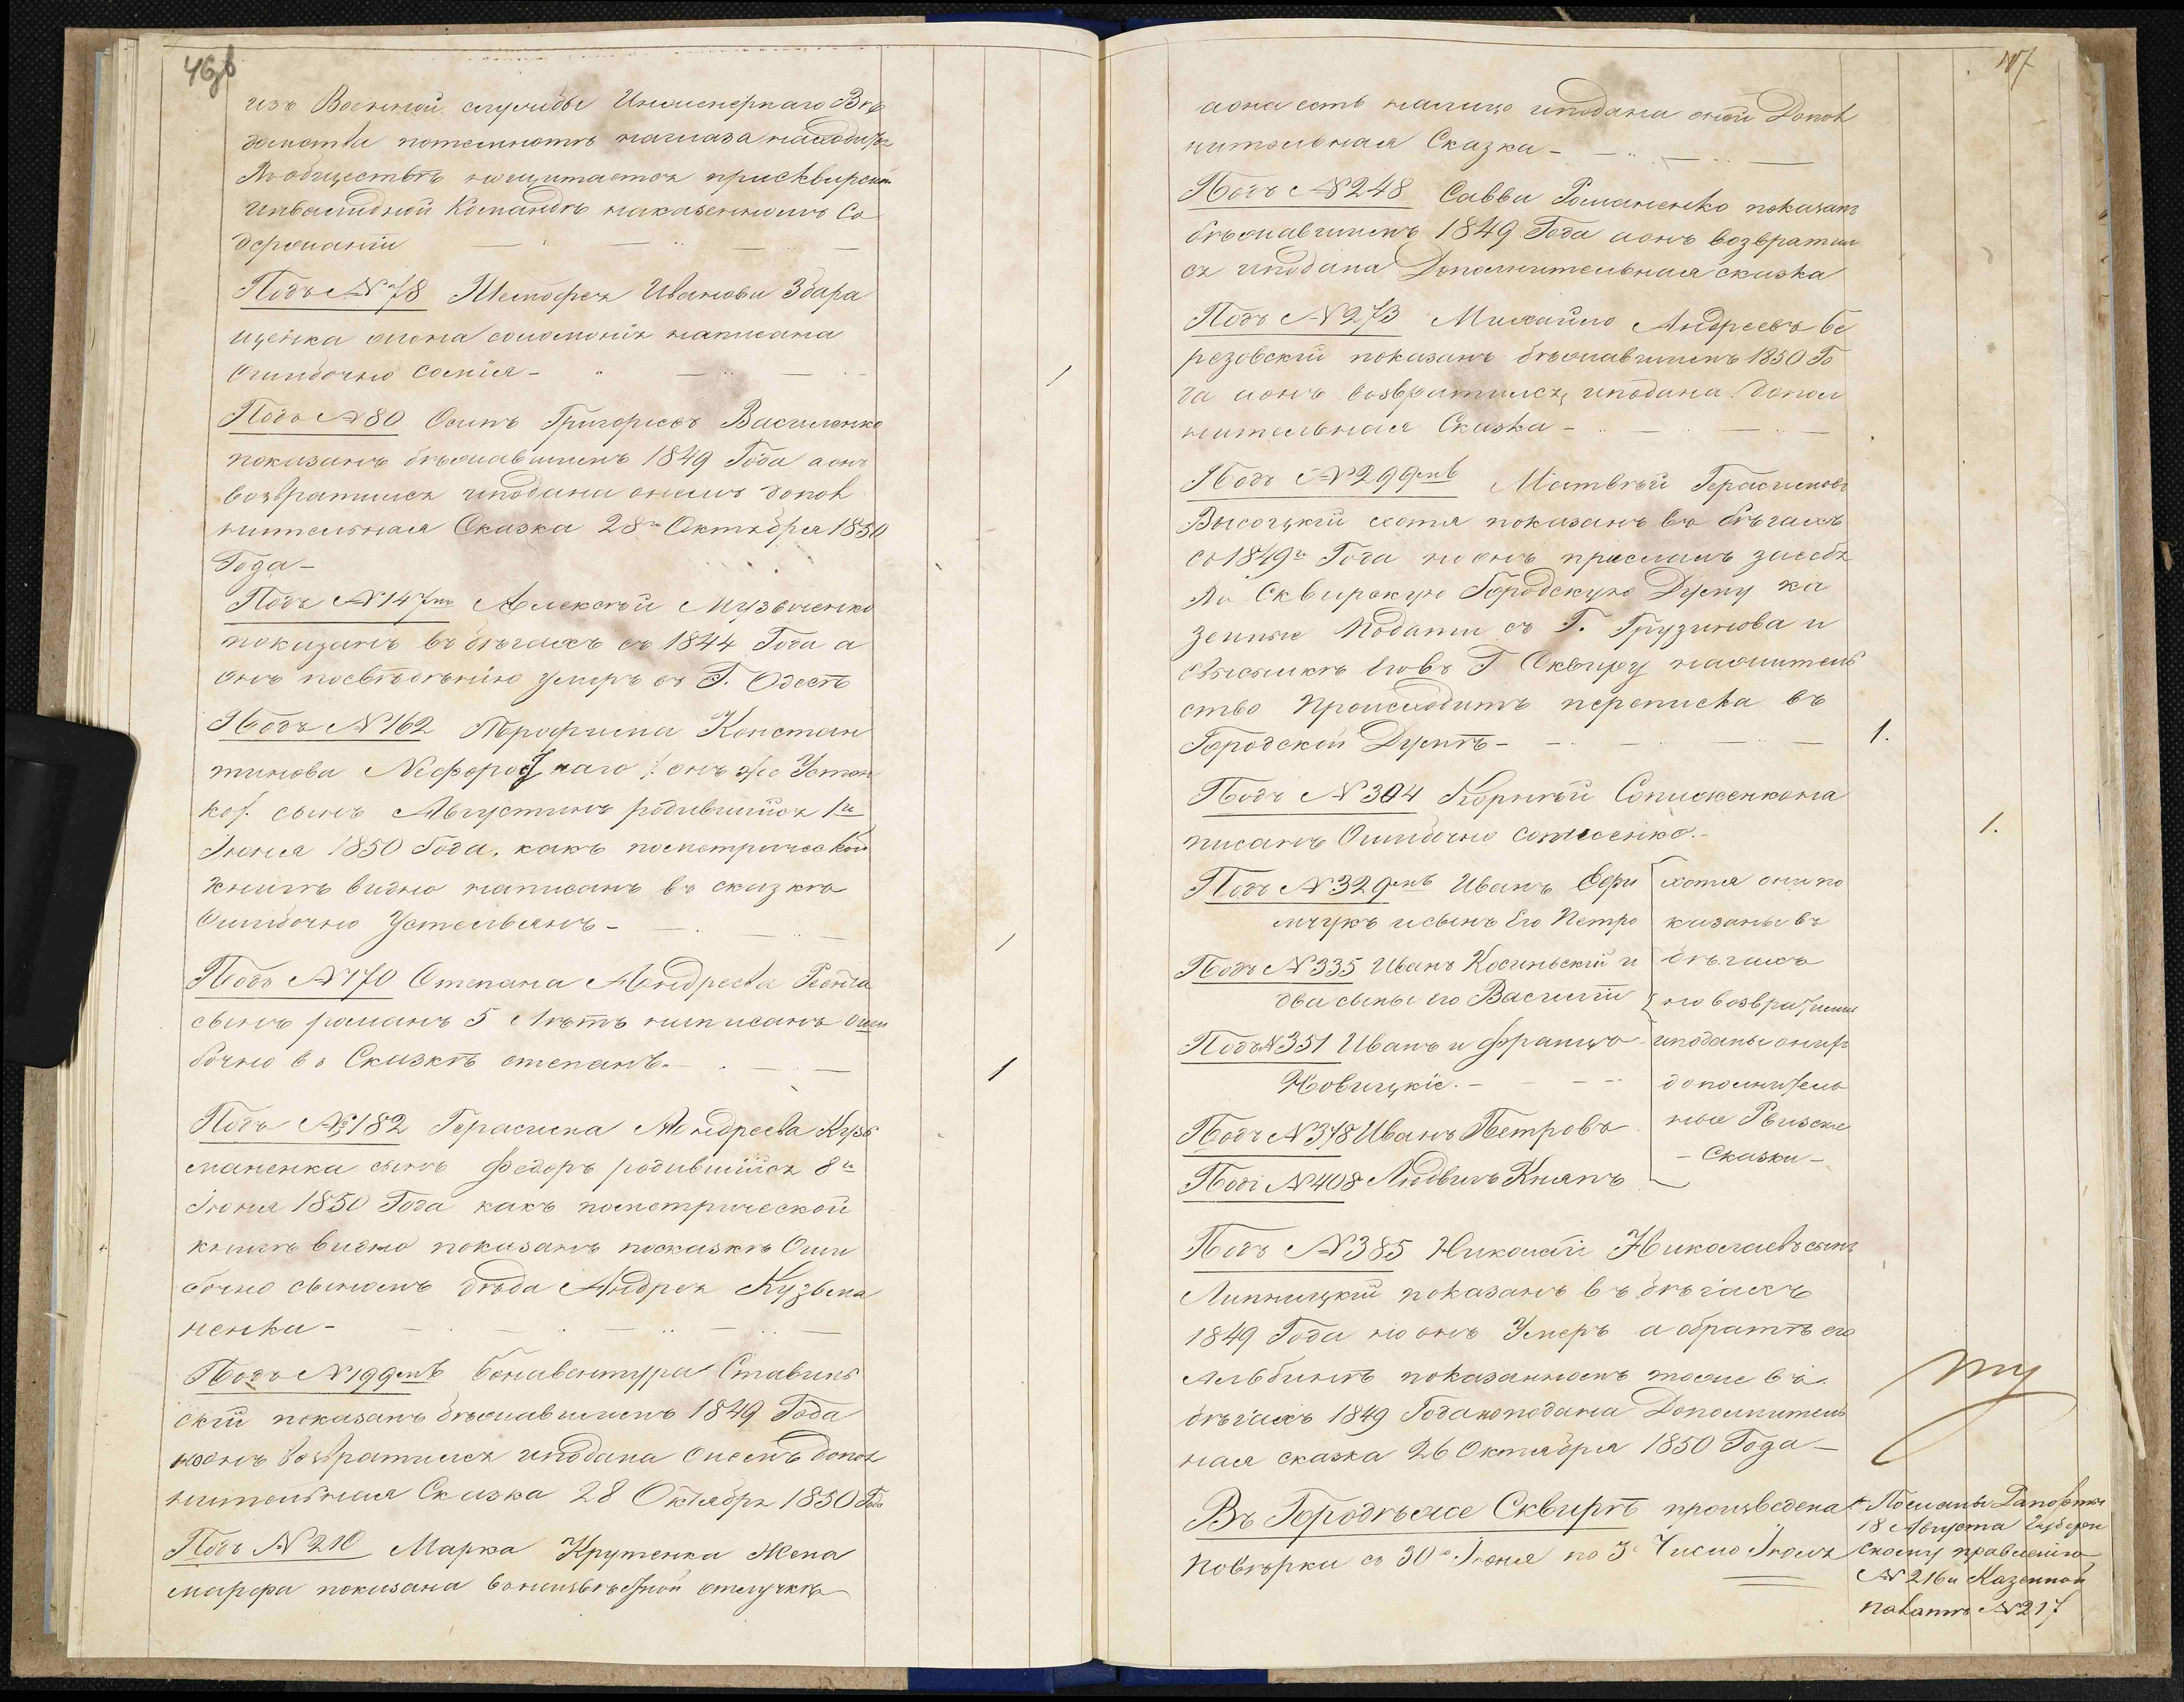 46об
изъ Военной службы Инженернаго Вѣ
домства
вобществѣ несчитается присквирской
инвалидной Командѣ наказенномъ Со
держаніи
Подъ №78 Ивановы Збара
щенка жена соломонія написана
Ошибочно Софія -
Подъ №80 Осипъ Григорьевъ Василенко
показанъ бѣжавшимъ 1849 Года а онъ
возвратился иподана онемъ допол
нительная Сказка 28го Октября 1850
Года -
Подъ №147мъ Алексѣй Музыченко
показанъ въ бѣгахъ съ 1844 Года а
онъ посвѣдѣнію умеръ въ Г. Одессѣ
Подъ №162 Трофима Констан
тинова онъ же Устен
ко/. сынъ Августинъ родившійся 1го
Іюня 1850 Года. какъ пометрической
книгѣ видно написанъ въ сказкѣ
Ошибочно Устельянъ -
Подъ №170 Степана Андреева
сынъ романъ 5 лѣтъ написанъ оши
бочно въ Сказкѣ степанъ. -
Подъ №182 Герасима Андреева Кузь
маненка сынъ Федоръ родившійся 8го
Іюня 1850 Года какъ пометрической
книгѣ видно показанъ посказкѣ Оши
бочно сыномъ дѣда Андрея Кузьма
ненка -
Подъ №199мъ Бонавентура Ставин
скій показанъ бѣжавшимъ 1849 Года
ноонъ возвратился иподана Онемъ допол
нительная Сказка 28 Октября 1850 Года
Подъ №210 Марка Крутенка Жена
марфа показана вонеизвѣстной отлучкѣ
1
1
1
107
аона есть налицо иподана оной Допол
нительная Сказка -
Подъ №248 Савва Романенко показанъ
бѣжавшимъ 1849 Года аонъ возвратил
ся иподана Дополнительная сказка
Подъ №273 Михайло Андреевъ Бе
резовскій показанъ бѣжавшимъ 1850 Го
да аонъ возвратился, иподана допол
нительная Сказка -
Подъ №299мъ Матвѣй Герасимовъ
Высоцкій хотя показанъ въ бѣгахъ
съ 1849го Года но онъ прислалъ засебя
въ Сквирскую Городскую Думу ка
зенные Подати съ Г. Грузинова и
овысылкѣ Еговъ Г Сквиру нажитель
ство происходитъ переписка въ
Городской Думѣ -
Подъ №304 Корнѣй на
писанъ Ошибочно
Подъ №329мъ Иванъ Ефи
мчукъ исынъ Его Петро
Подъ №335 Иванъ Косиньскій и
два сына его Василій
Подъ №351 Иванъ и Францъ
Новицкіе. -
Подъ №378 Иванъ Петровъ
Подъ №408 Людвигъ Кнапъ
хотя онипо
казаны въ
бѣгахъ
но возвратились
иподаны онихъ
дополнитель
ные Ревизскіе
- Сказки -
Подъ №385 Николай Николаевъ сынъ
Липницкій показанъ въ бѣгахъ
1849 Года но онъ Умеръ а обратѣ его
Альбинѣ показанномъ тоже въ
бѣгахъ 1849 Года ноподана Дополнитель
ная сказка 26 Октября 1850 Года -
Въ Городѣже Сквирѣ произведена
Повѣрки съ 30го Іюня по 3 Число Іюля
1.
1.
18 Августа Губерн
скому правленію
№216 и Казенной
палатѣ №217